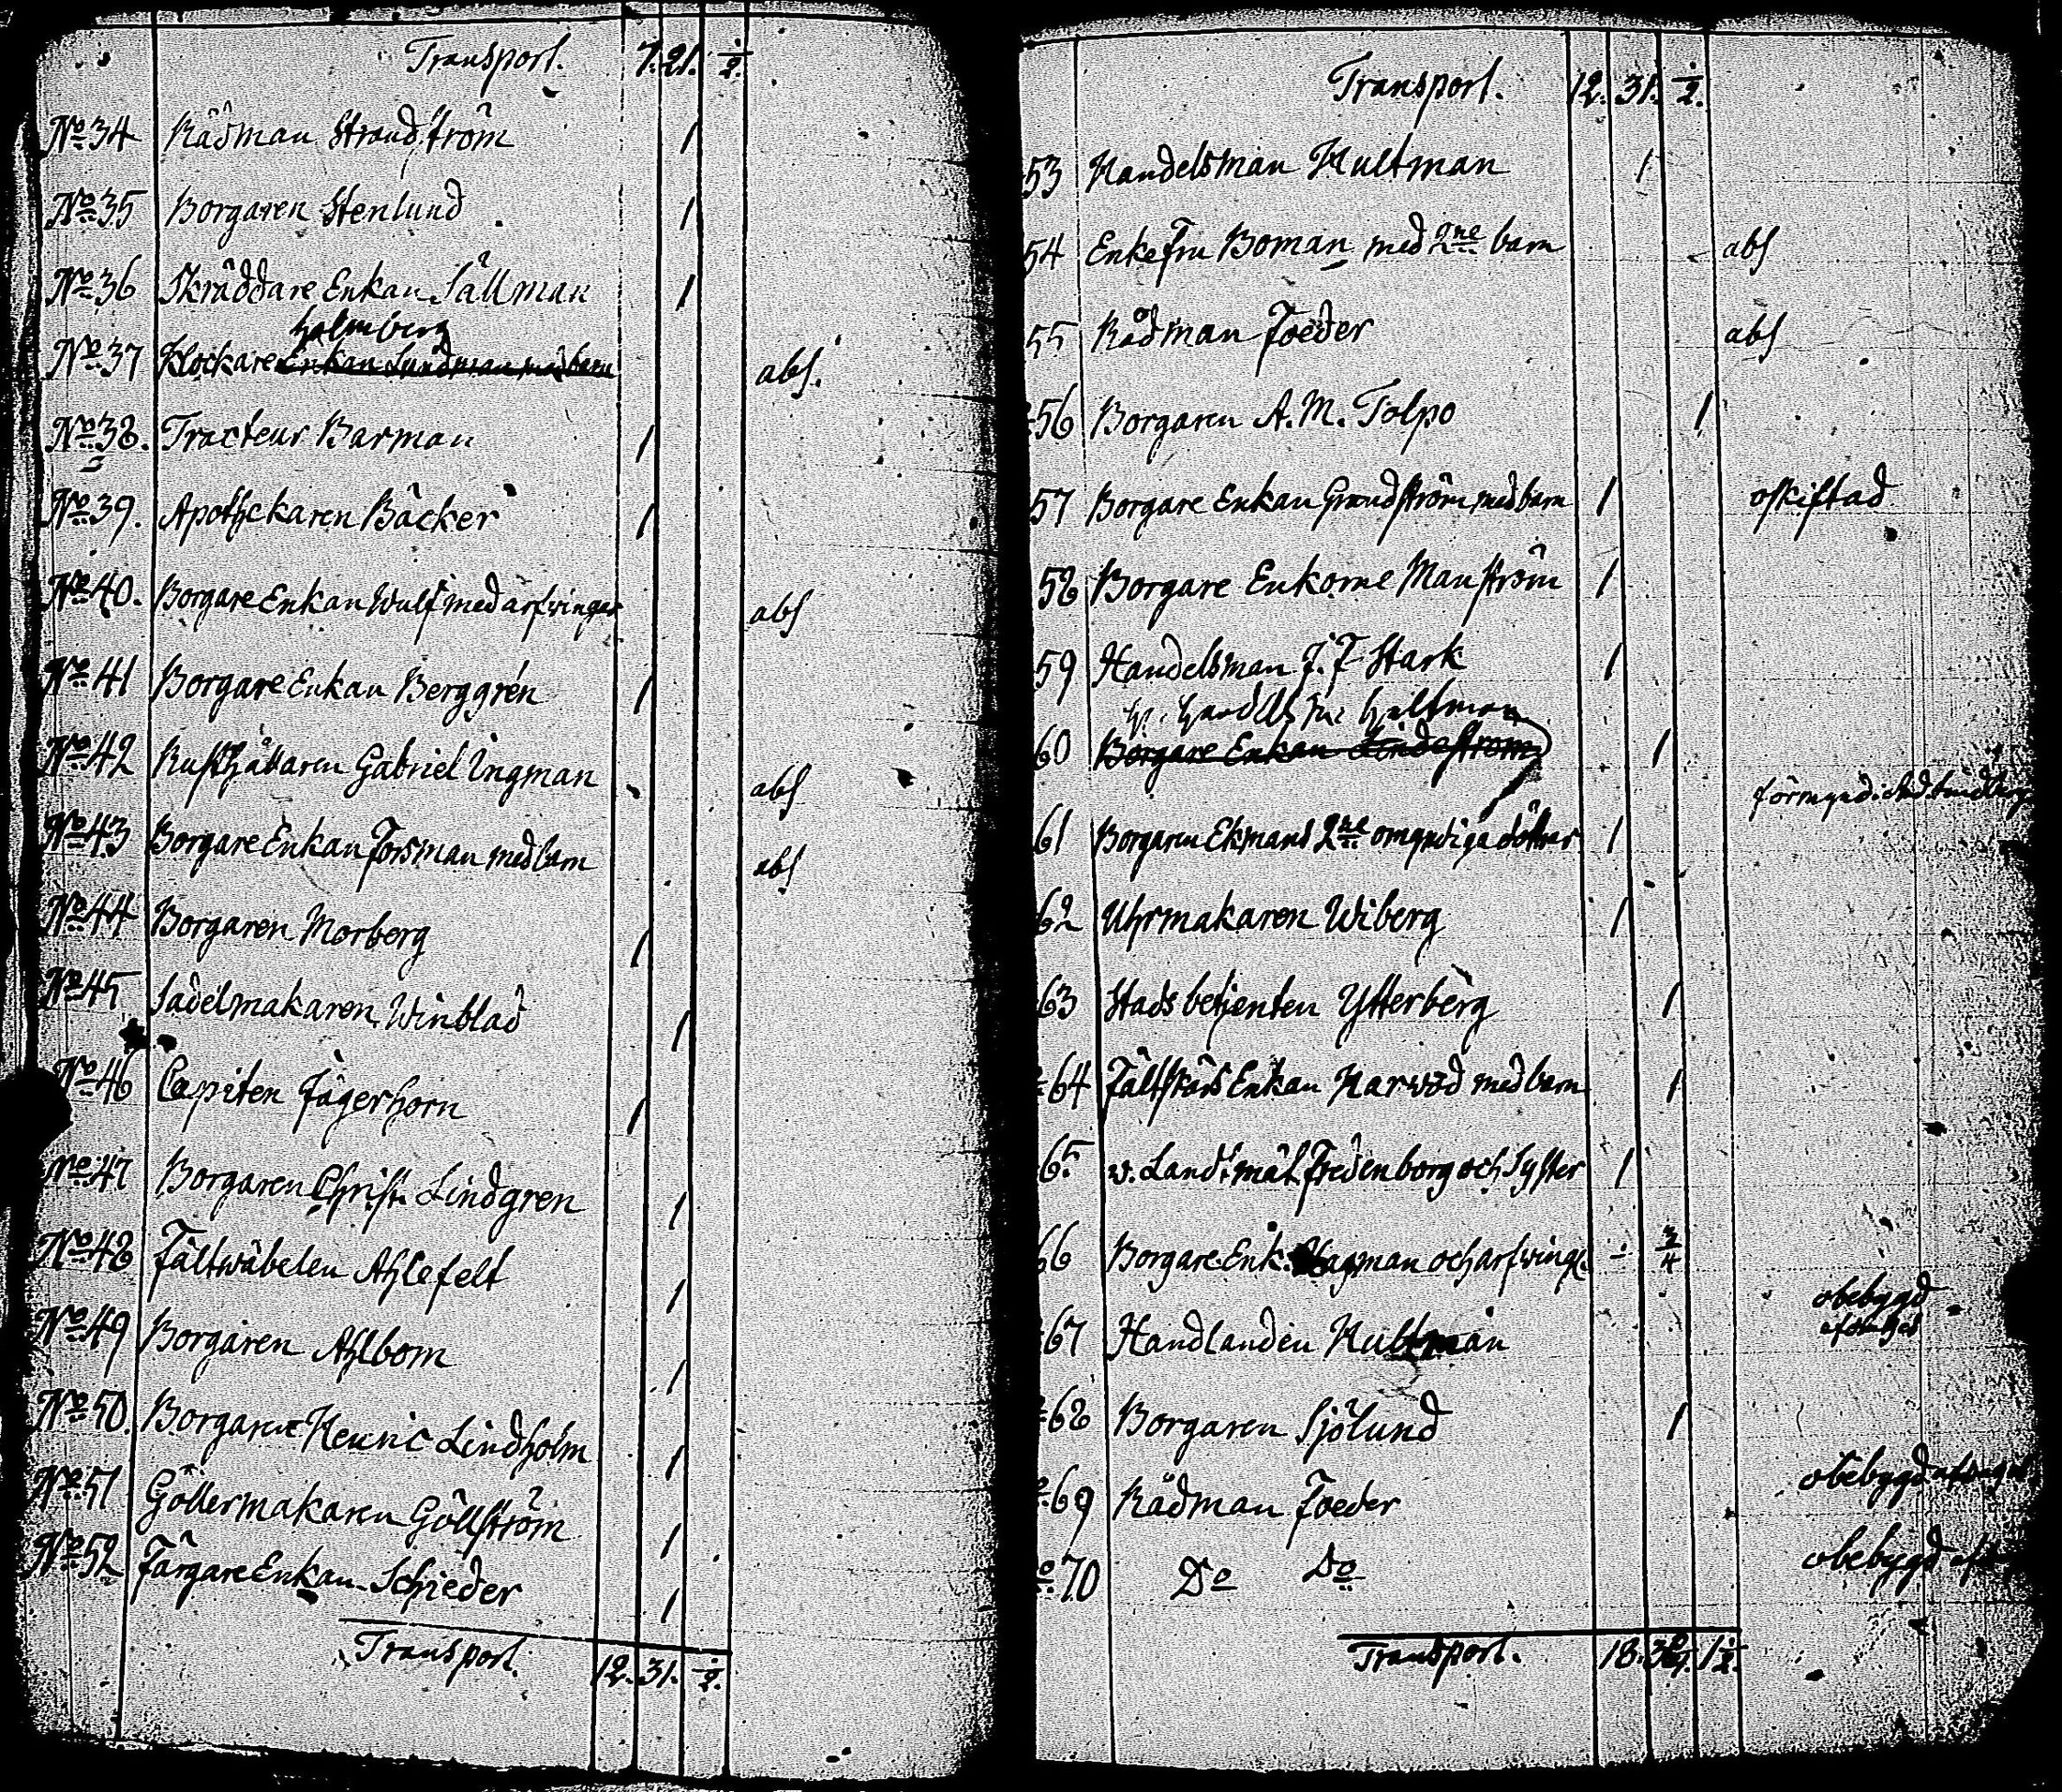 Transport. 7. 21. 1/2.
No 34 Rådman Strandström 1
No 35 Borgaren Stenlund 1
No 36 Skräddare Enkan Sällman 1
holmberg
No 37 Klockare Enkan Lundman med barn abs.
No 38. Tracteur Barman 1
No 39. Apothekaren Bäcker 1
No 40. Borgare Enkan Wulf med arfvingar abs
No 41 Borgare Enkan Berggrén 1
No 42 Rusthållaren Gabriel Ingman abs
No 43 Borgare Enkan Forsman med barn abs
No 44 Borgaren Morberg 1
No 45 Sadelmakaren Winblad 1
No 46 Capiten Jägerhorn 1
No 47 Borgaren Christ. Lindgren 1
No 48 Fältwäbelen Ahlefelt 1
No 49 Borgaren Ahlbom 1
No 50. Borgaren Henric Lindholm 1
No 51 Göllermakaren Göllström 1
No 52 Färgare Enkan Schieder 1
Transport. 12. 31. 1/2.
Transport. 12. 31. 1/2.
53 Handelsman Hultman 1
54 Enkefru Boman med 2ne barn abs
55 Rådman Foeder abs
56 Borgaren A. M. Tolpo 1
57 Borgare Enkan Grandström med barn 1 oskiftad
58 Borgare Enkorne Manström 1
59 Handelsman J. F. Stark 1
hultman
60 Borgare Enkan Lindström 1
61 Borgaren Ekmans 2ne omyndiga döttrar 1
62 Uhrmakaren Wiberg 1
63 Stads betjenten Ytterberg 1
64 Fältskärs Enkan Harwod med barn 1
65 v. Landtmät. Fredenborg och Syster 1
66 Borgare Enk. Hagman och arfving. - 3/4
67 Handlanden Hultman obebygd
68 Borgaren Sjölund 1
69 Rådman Foeder obebygd
No 70 Do Do obebygd
Transport. 18. 1 1/2.